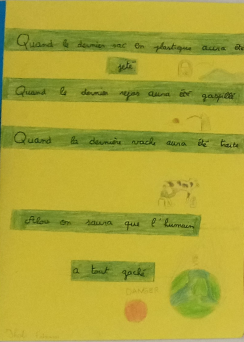 Quand le dernier sac en plastique aura été
jeté
Quand le dernier repas aura été gaspillé
Quand la dernière vache aura été traite
Alors on saura que l'humain
a tout gaché